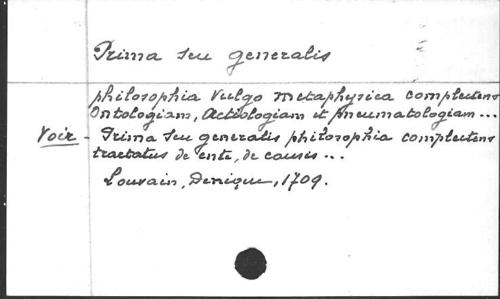 Prima seu generalis
philosophia vulgo metaphysica complectens
Ontologiam, Aetiologiam et pneumatologiam...
Voir - Prima seu generalis philosophia complectens
tractatus de ente, de causis...
Louvain, Denique, 1709.